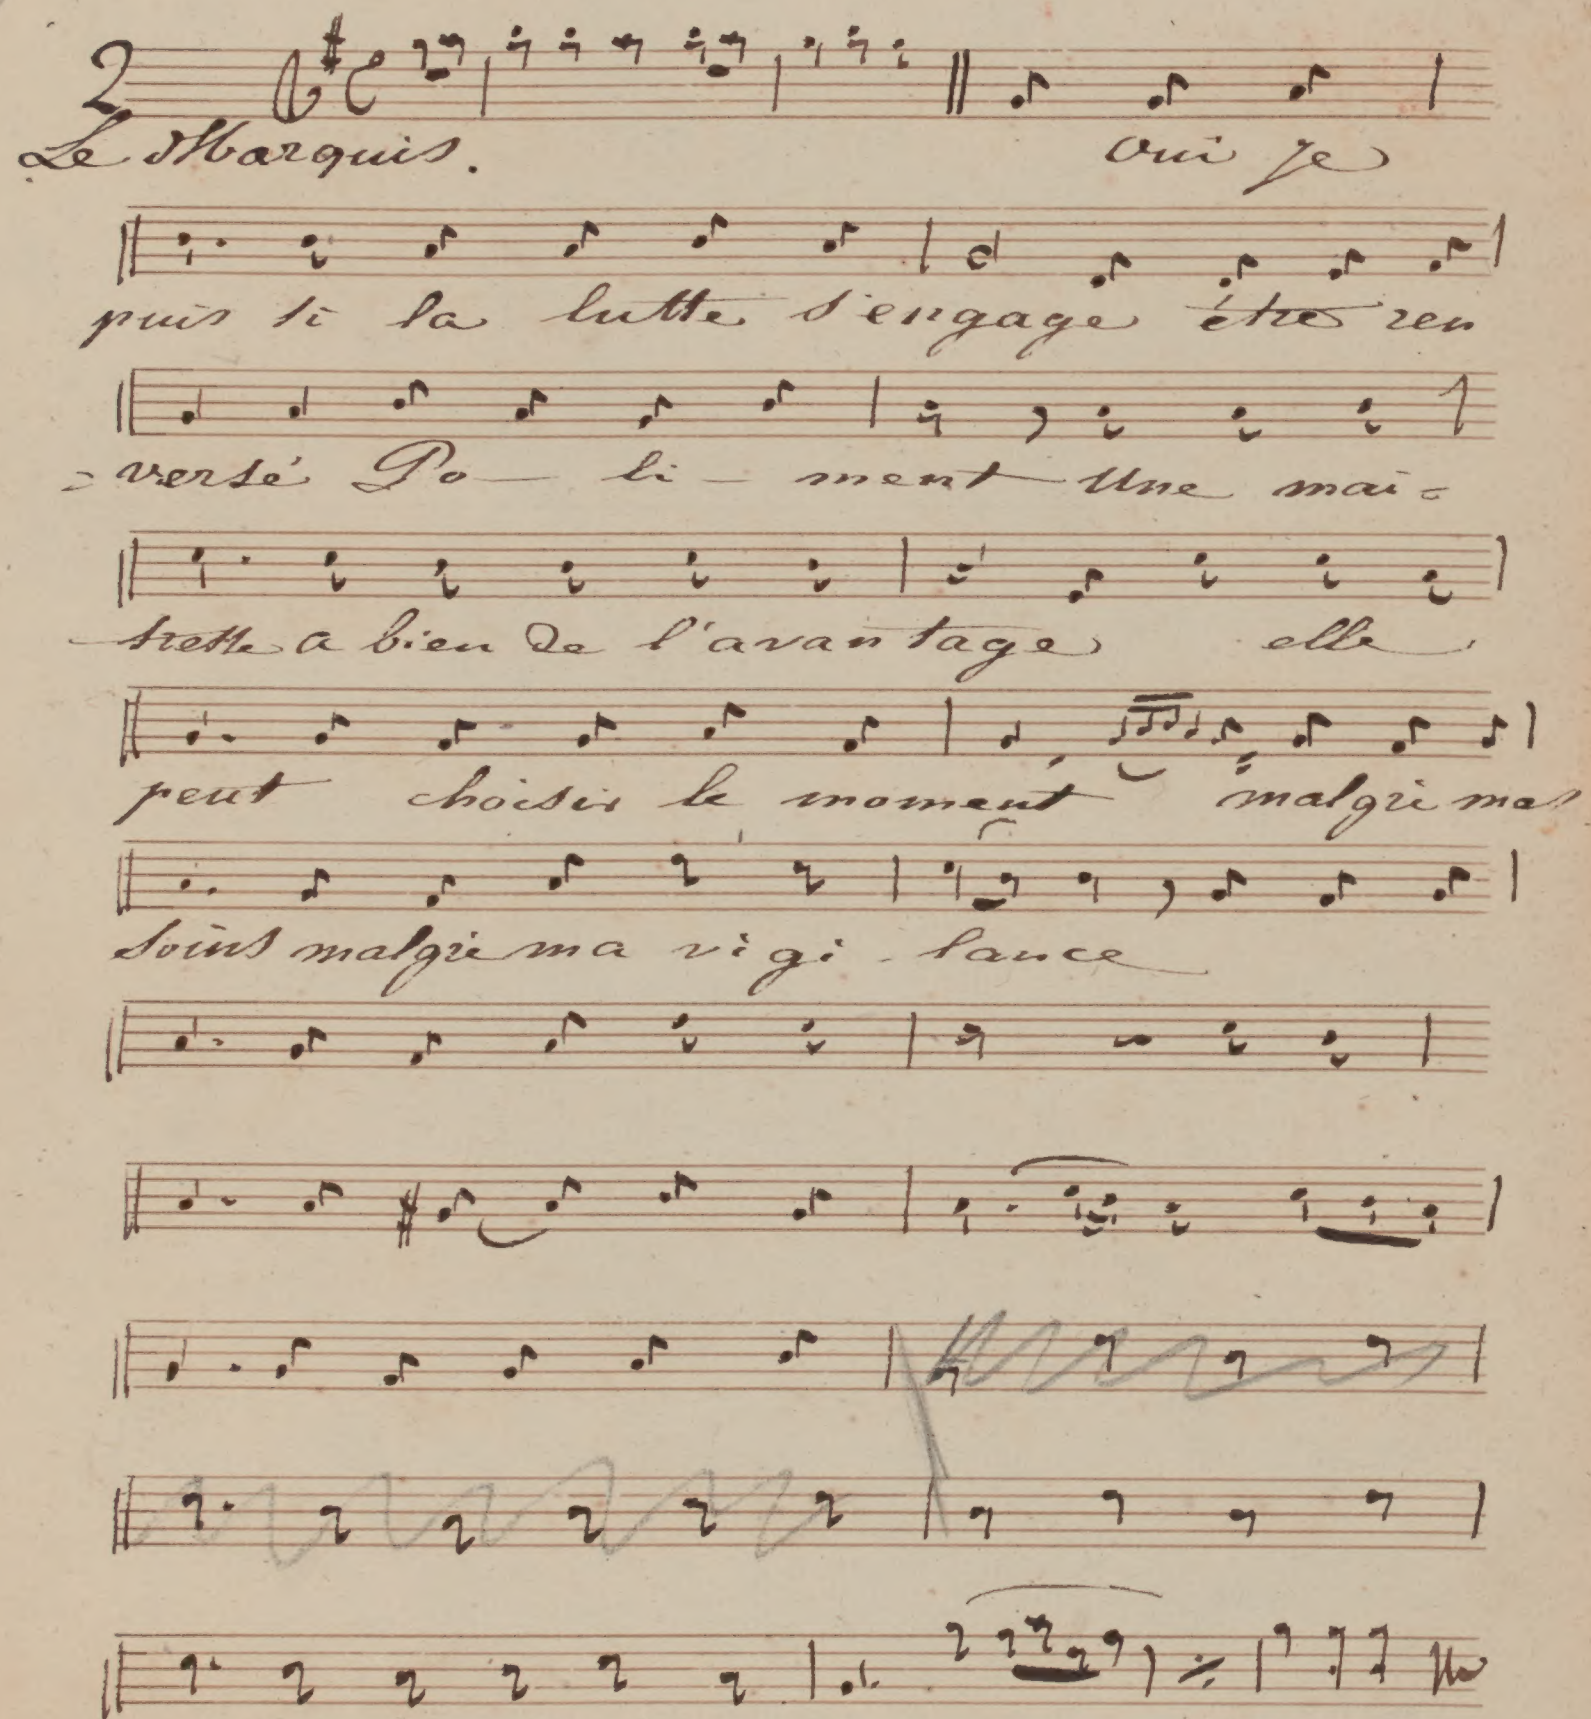 2
Le Marquis. Oui je
puis si la lutte s'engage être ren
= versé Po - li - ment Une mai =
tresse a bien de l'avantage elle
peut choisir le moment malgré mes
soins malgré ma vigi - lance